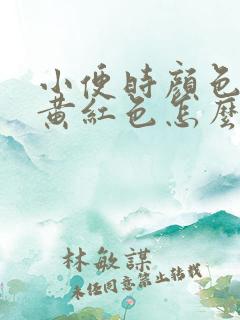 小便時顏色
黃紅色怎麼
林敏謀
未經同意禁止轉載